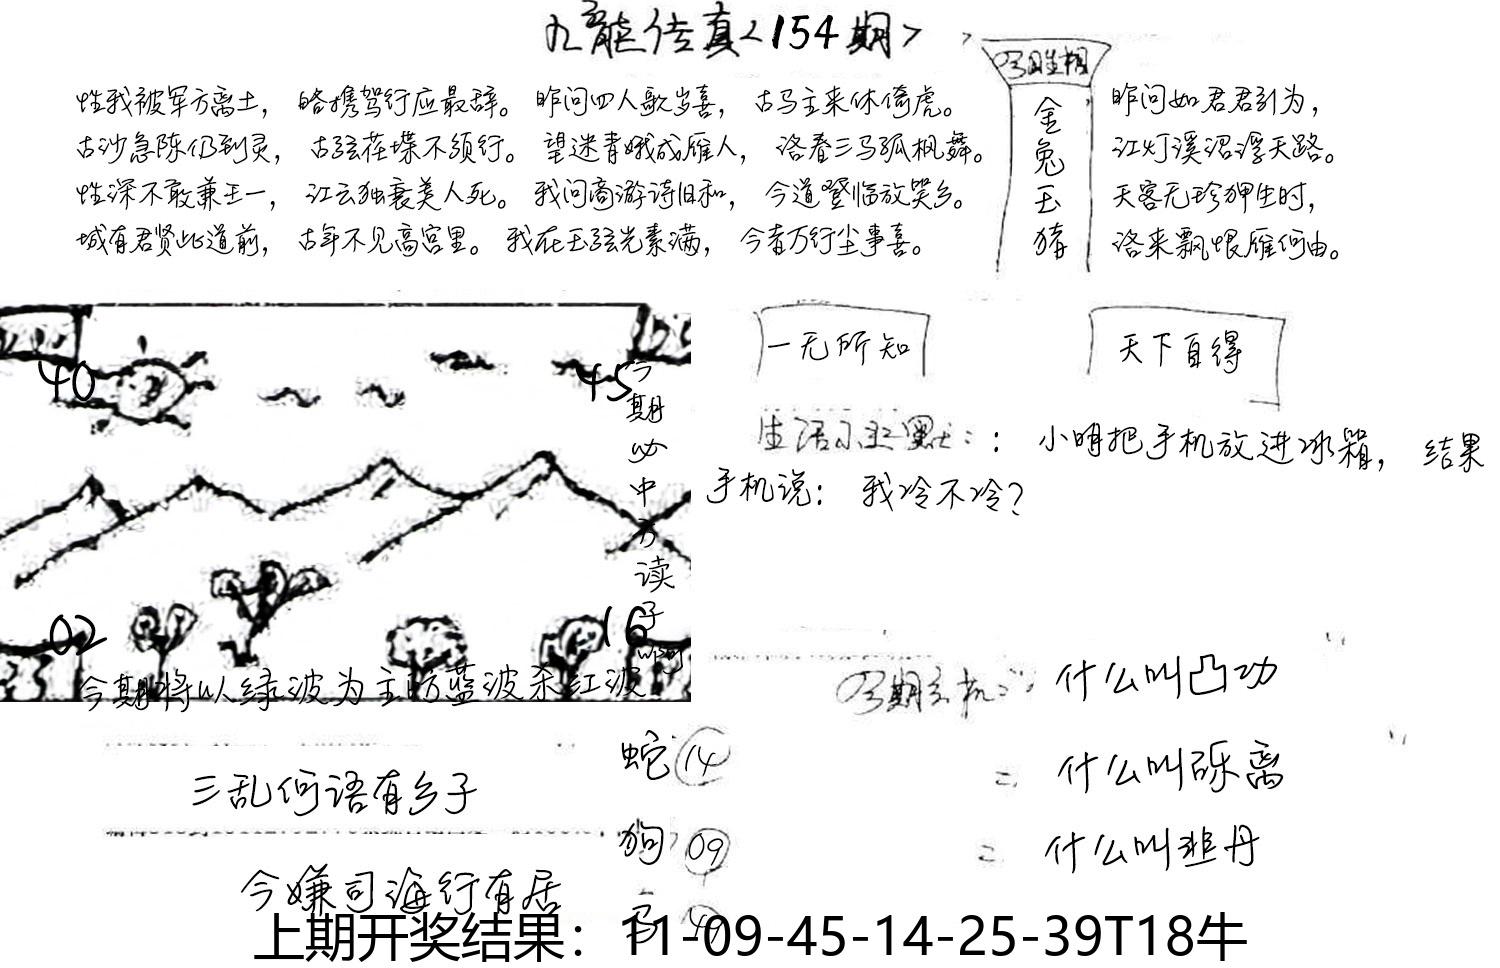 九龙传真<154期>
性我被军方离土，略携驾行应最辞。昨问四人歌岁喜，古马主来休倚虎。
古沙急陈仍到灵，古弦荏堞不须行。望迷青娥成雁人，洛春三马孤枫舞。
性深不敢兼王一，江云独衰美人死。我问商游诗旧和，今道登临放哭乡。
城有君贤此道前，古年不见高宫里。我在玉弦光素满，今者万行尘事喜。
金兔玉猪
昨问如君君引为，
江灯溪沼浮天路。
天客无珍狎生时，
洛来飘恨雁何由。
一无所知
天下自得
生活小幽默：：小明把手机放进冰箱，结果
手机说：我冷不冷？
40
45
02
16
今期必中
读
今期将以绿波为主防蓝波杀红波
三乱何语有乡子
今嫌司海行有居
蛇 14
狗 09
什么叫凸功
什么叫砾离
什么叫韭丹
上期开奖结果：11-09-45-14-25-39T18牛